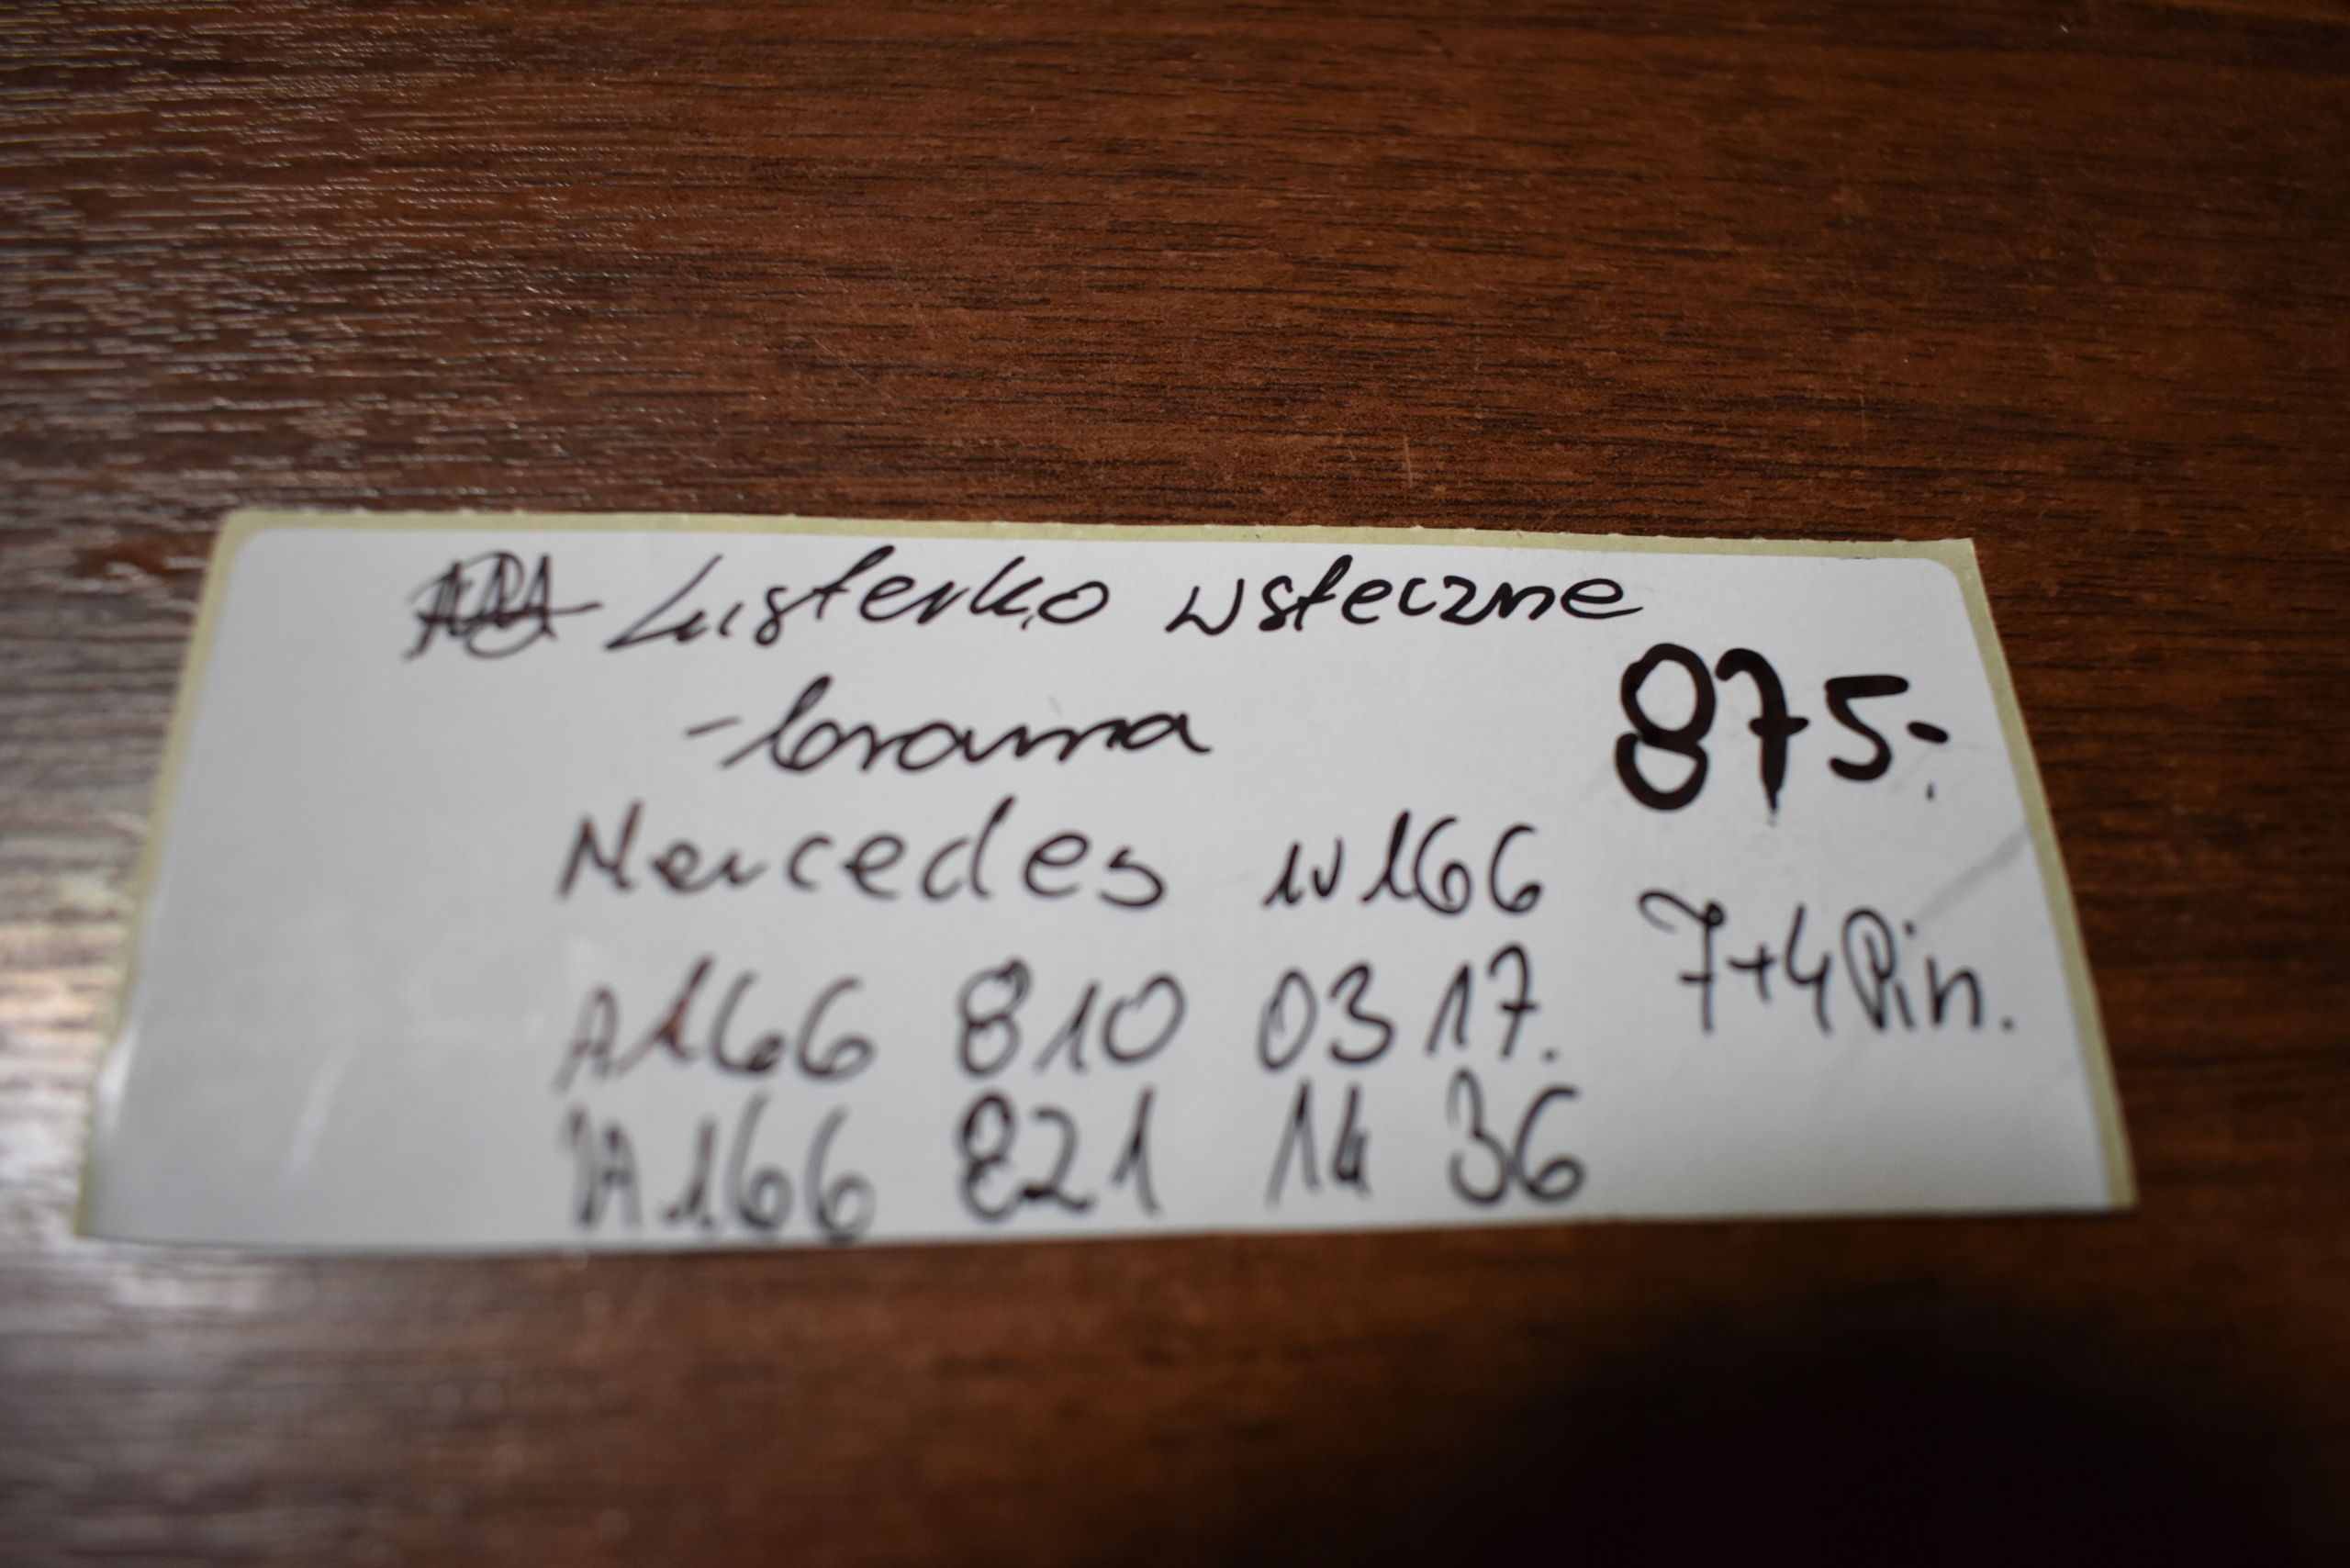 Lusterko wsteczne
-brama
875.-
Mercedes W166
7+4Pin.
A166 810 03 17.
A166 821 14 36